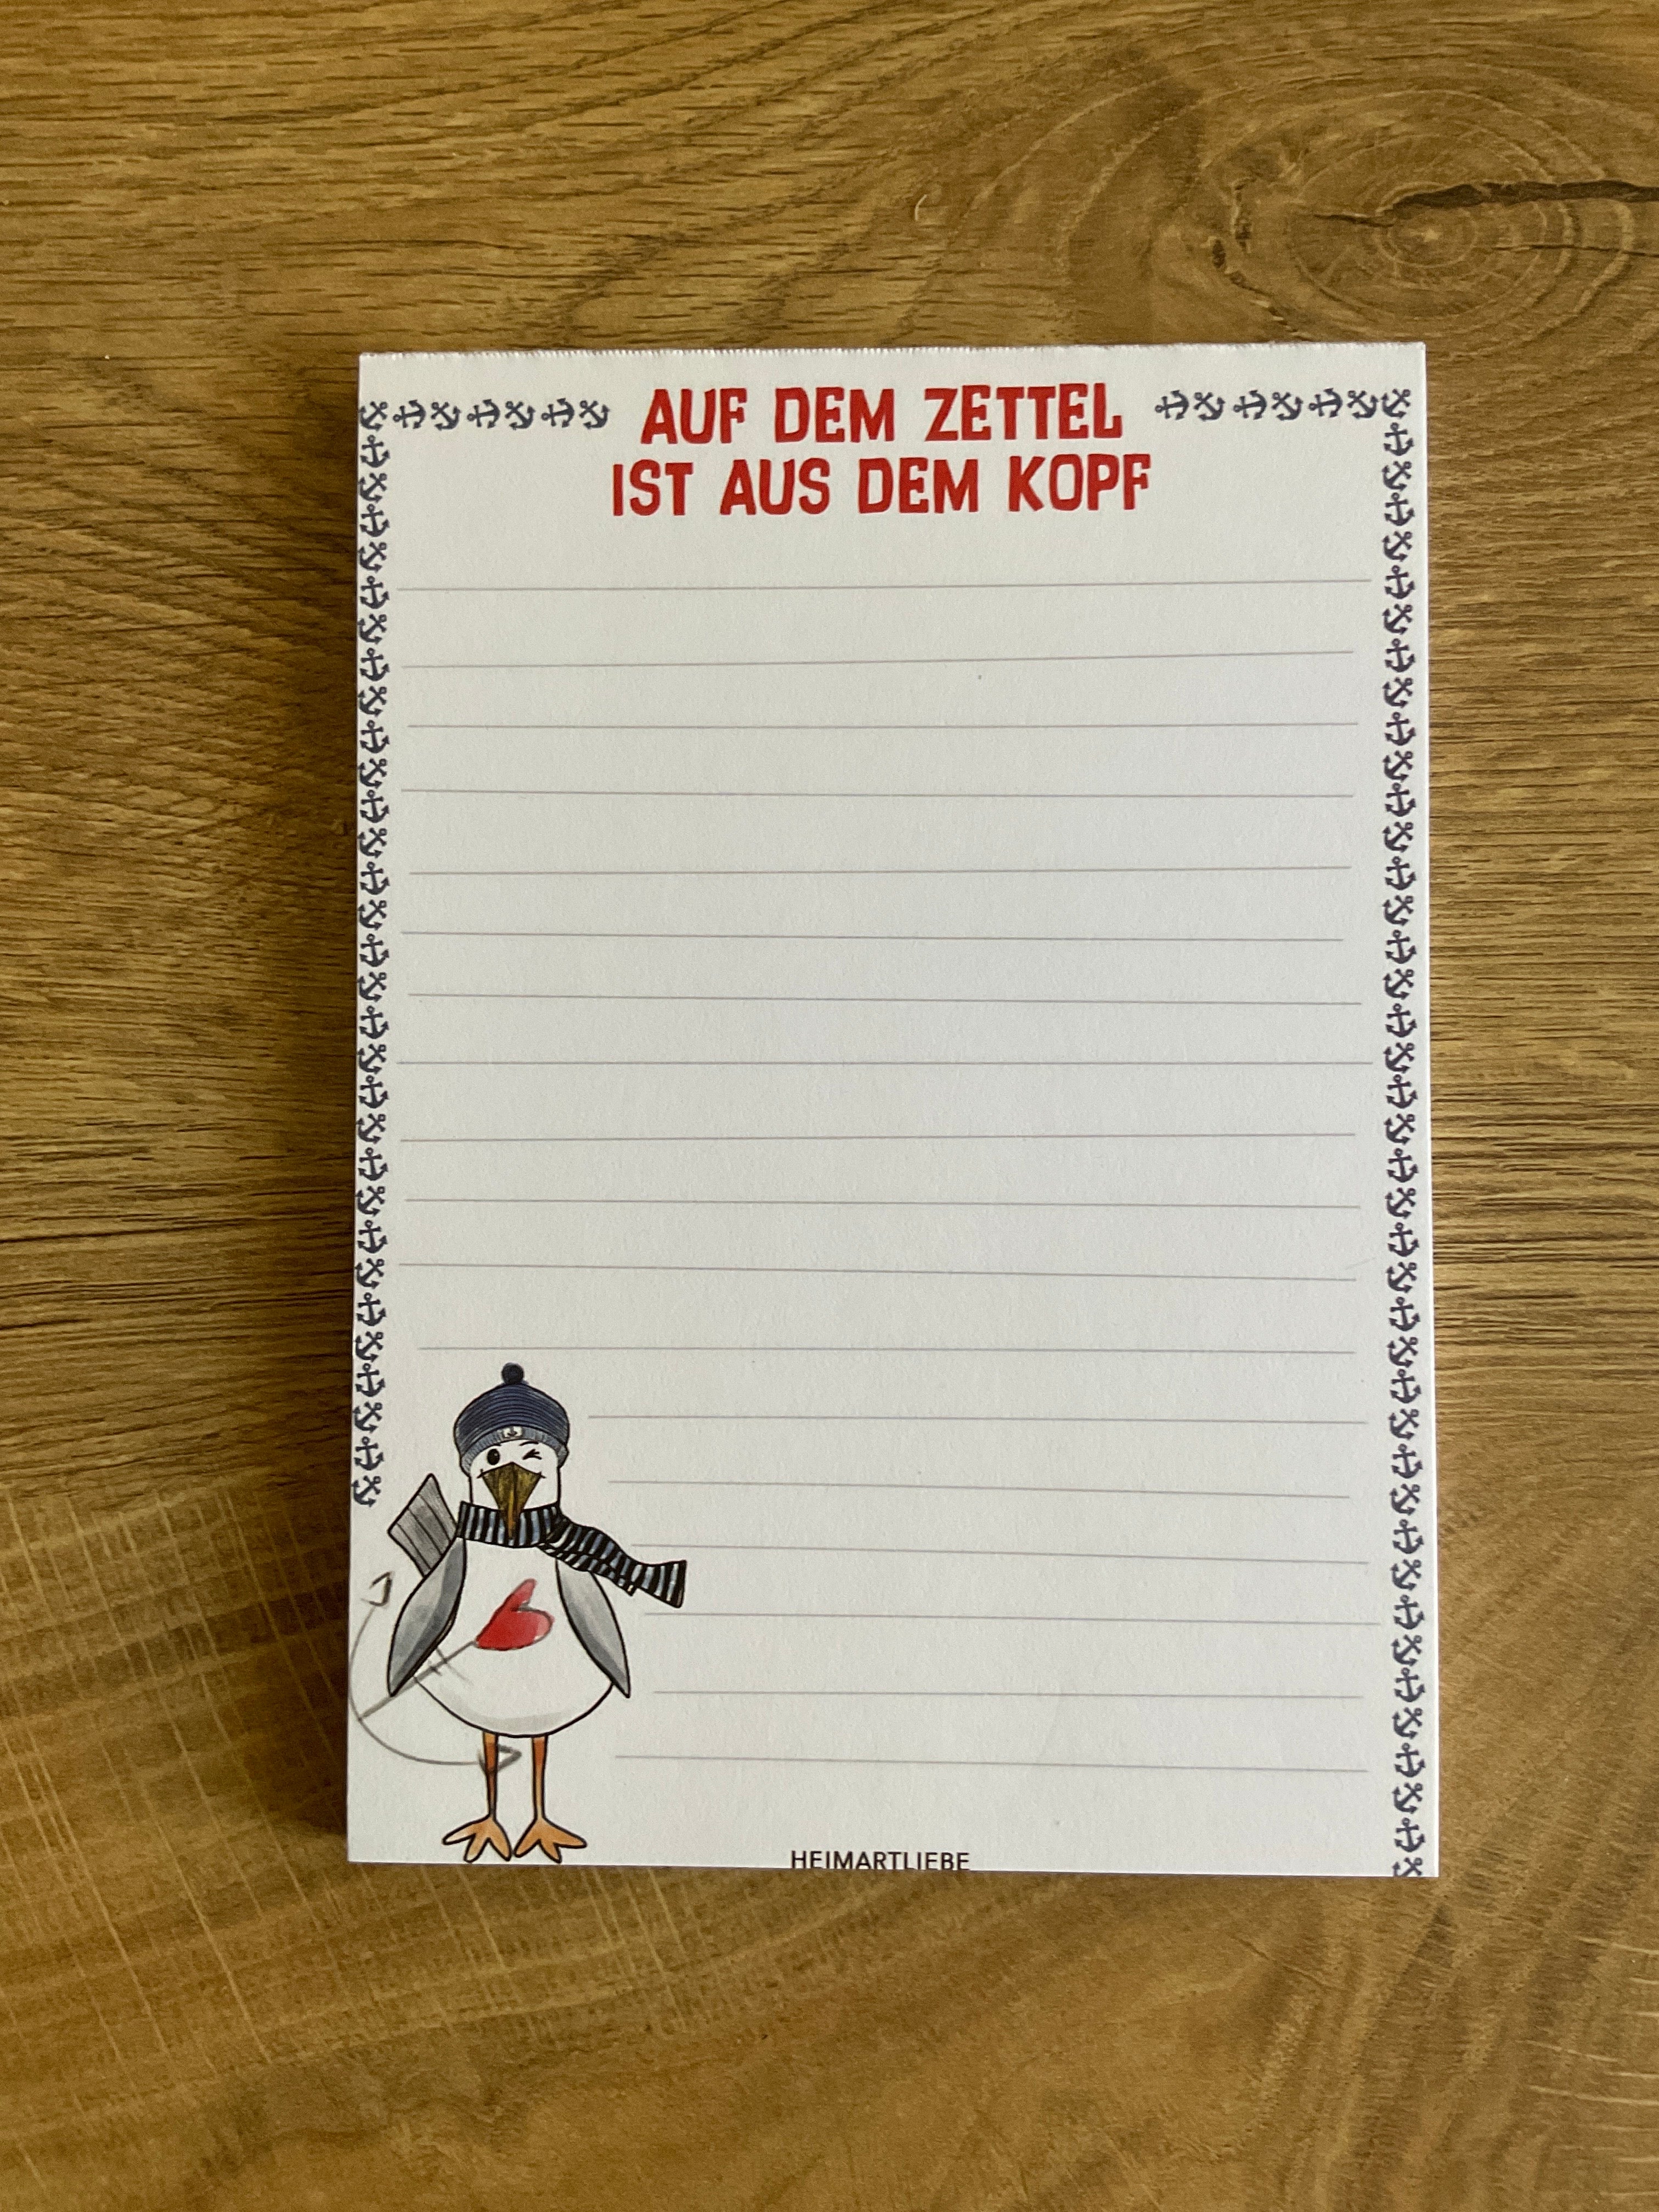 AUF DEM ZETTEL
IST AUS DEM KOPF
HEIMARTLIEBE